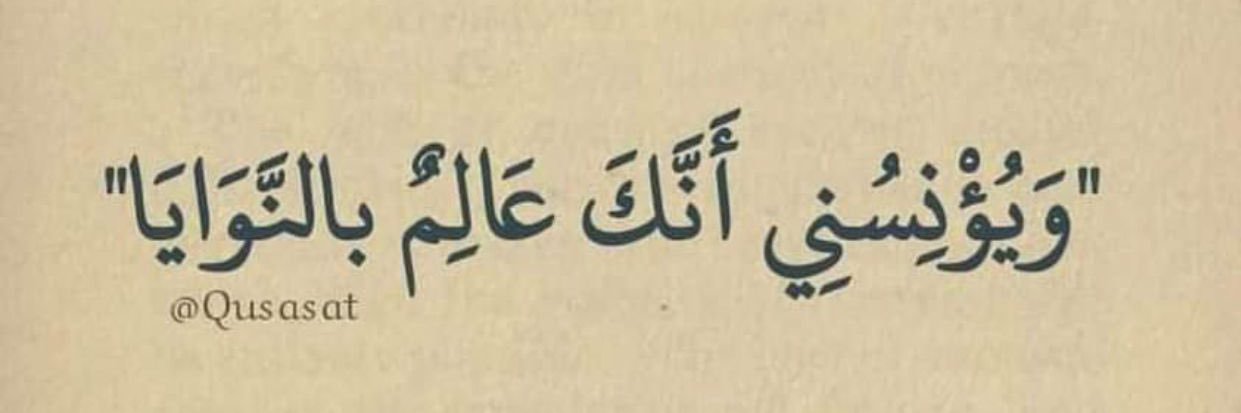 "وَيُؤْنِسُنِي أَنَّكَ عَالِمٌ بالنَّوَايَا"
@Qusasat